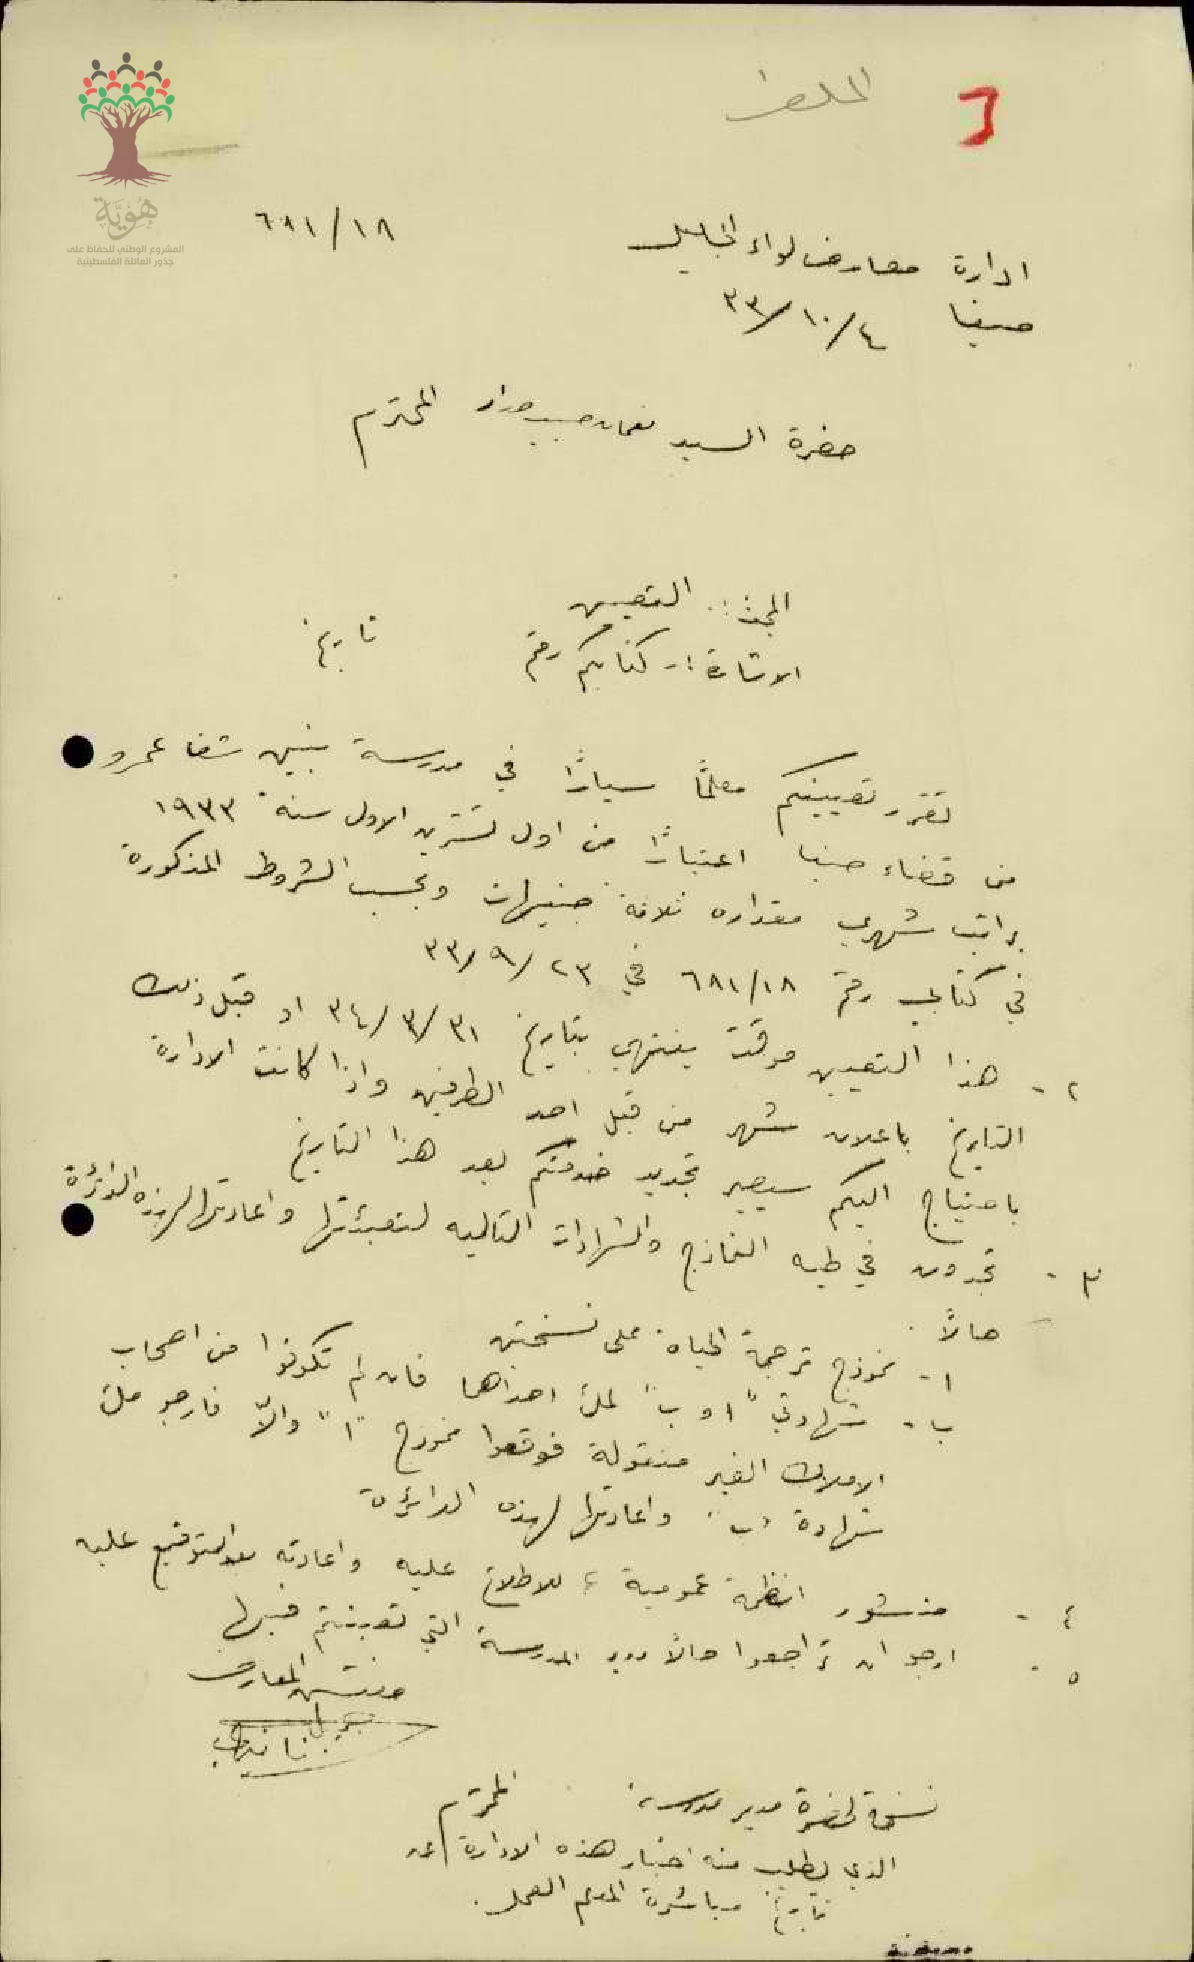 الملف
٦
هُوِيَّة
المشروع الوطني للحفاظ على
جذور العائلة الفلسطينية
٦٨١/١٨
ادارة معارف لواء الجليل
حيفا ٣٣/١٠/٤
حضرة السيد نعمان حبيب المحترم
البحث :- التعيين
الاشارة :- كتابكم رقم تاريخ
تقرر تعيينكم معلمًا سيارًا في مدرسة بنين شفا عمرو
من قضاء حيفا اعتبارًا من اول تشرين الاول سنة ١٩٣٣
براتب شهري مقداره ثلاثة جنيهات وبحسب الشروط المذكورة
في كتابي رقم ٦٨١/١٨ في ٣٣/٩/٢٣
٢- هذا التعيين موقت ينتهي بتاريخ ٣٤/٣/٣١ او قبل ذلك
التاريخ باعلان شهر من قبل احد الطرفين واذا كانت الادارة
باحتياج اليكم سيصير تجديد خدمتكم بعد هذا التاريخ
٣- تجدون في طيه النماذج والشهادات التاليه لتعبئتها واعادتها لهذه الدائرة
حالاً.
ا- نموذج ترجمة الحياة على نسختين
ب- شهادتي "ا و ب" لملئ احداهما فان لم تكونوا من اصحاب
الاملاك الغير منقولة فوقعوا نموذج "ا" والاّ فارجو ملئ
شهادة "ب" واعادتها لهذه الدائرة
٤- منشور انظمة عمومية ٤ للاطلاع عليه واعادته بعد التوقيع عليه
٥- ارجو ان تراجعوا حالاً مدير المدرسة التي تعينتم فيها
مفتش المعارف
نسخة لحضرة مدير مدرسة المحترم
الذي يطلب منه اخبار هذه الادارة عن
تاريخ مباشرة المعلم العمل.